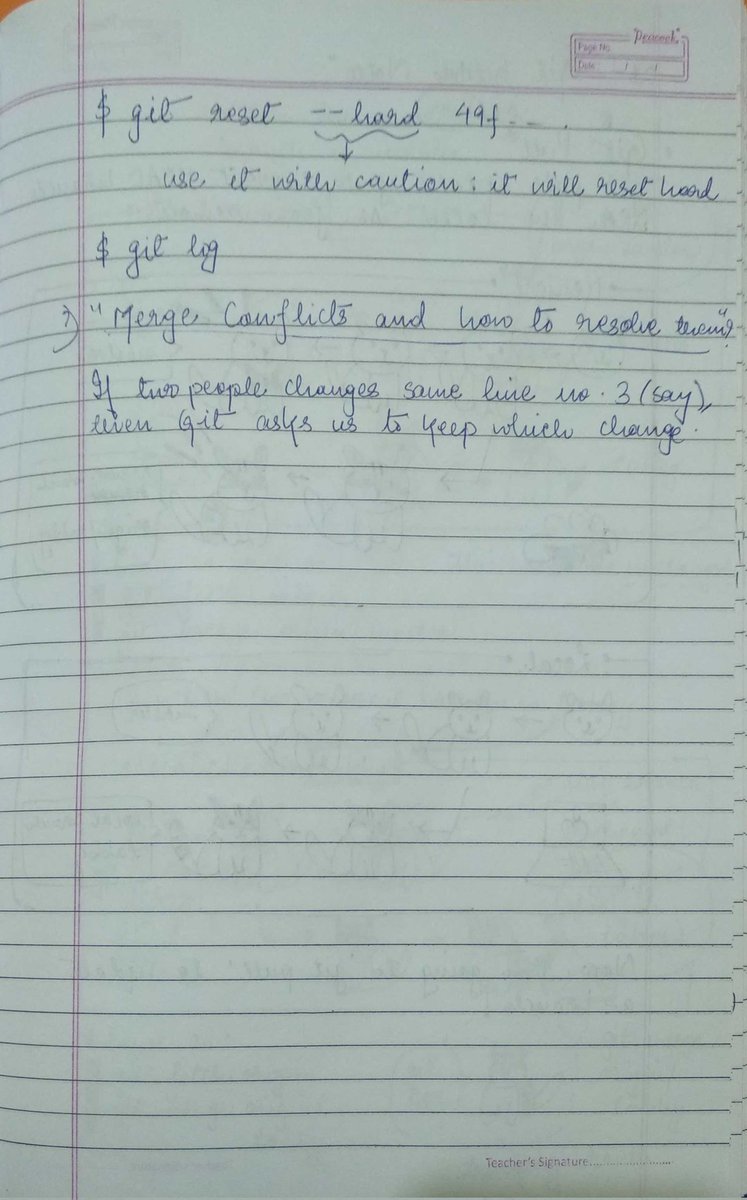 "Peacock"
Page No.
Date / /
$ git reset --hard 49f --- .
use it with caution : it will reset hard
$ git log
7) "Merge Conflicts and how to resolve them"?
If two people changes same line no. 3 (say),
even Git asks us to keep which change.
Teacher's Signature........................